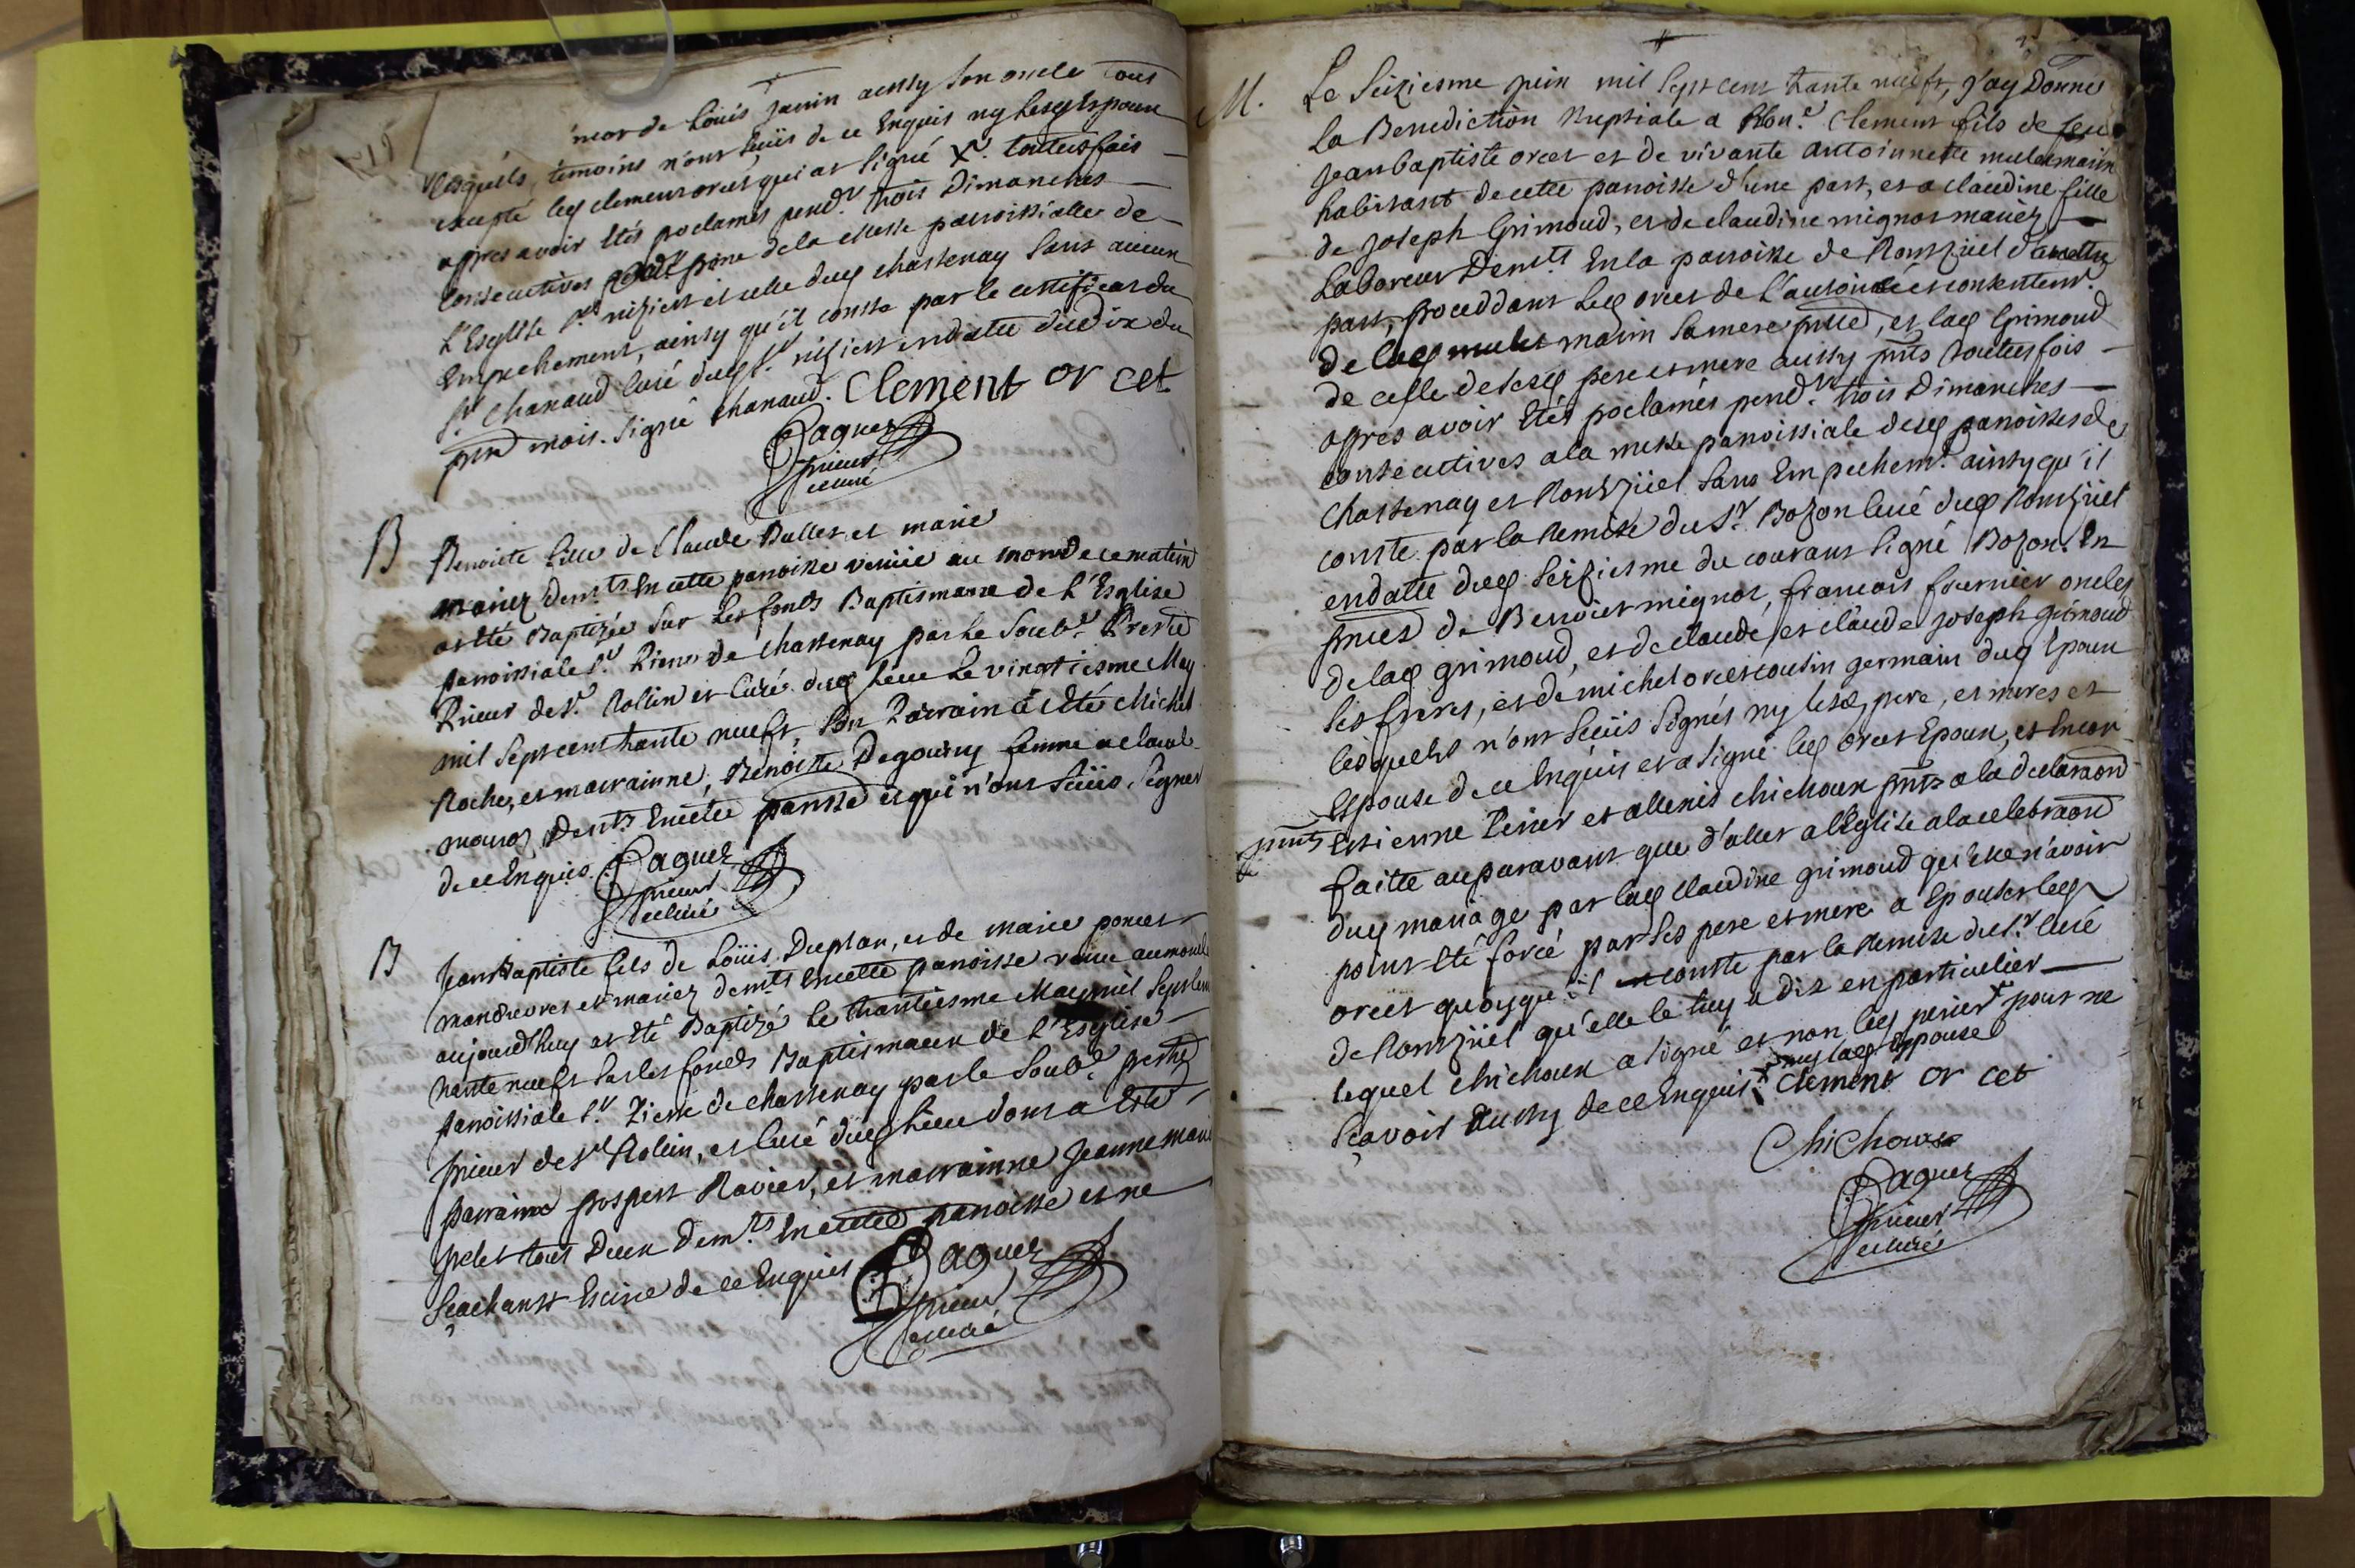 encor de Louis Janin aussy son oncle tous
lesquels témoins n'ont sçeüs de ce Enquis ny lesq Espoux
excepté leq clement orcet qui at signé toutesfois
apres avoir Etés proclamés pend.t trois Dimanches
consecutives au prone de la Messe paroissialle de
L'Esglise S.t nizier et celle duq chastenay sans aucun
Empechement, ainsy qu'il conste par le certificat du
S.r Chanaud curé duq S.t nizier endatte du dix du
pnt mois. Signé Chanaud. Clement or cet
Paquez
prieur
et curé
B
Benoite fille de Claude Bullet et marie
mariez dem.ts En cette paroisse venüe au monde ce matin
at Eté Baptizée sur les fonds Baptismaux de L'Esglise
paroissiale S.t Pierre de chastenay par le Soub.é Prestre
Prieur de S.t Rollin et Curé duq lieu Le vingtiesme May
mil sept cent trante nuefs, Son Parrain a Eté Michel
Roche, et marrainne, Benoitte Degoutty femme a claude
dem.ts En cette parrsse et qui n'ont sçeüs signer
de ce Enquis. Paquez
prieur
et curé
B
Jean Baptiste fils de Loüis Duplan, et de marie poncet
manoeuvres et mariez dem.ts En cette paroisse venu au monde
aujourdhuy at Eté Baptizé le trantiesme May mil sept cent
trante nuefs sur les fonds Baptismaux de L'Esglise
paroissiale S.t Pierre de chastenay par le Soub.é prestre
prieur de S.t Rolein, et curé duq lieu dont a Eté
parrain prospert Ravier, et marrainne Jeanne marie
pelet tous Deux dem.ts En cette paroisse et ne
sçachantt Escrire de ce Enquis Paquez
prieur
et curé
M. Le Seiziesme juin mil Sept cent trante nuefs, J'ay Donné
la Benediction Nuptiale a Clement fils de feu
Jean baptiste orcet et de vivante antoinnette mulet marin
habitant de cette paroisse d'une part, et a claudine fille
de Joseph Grimoud, et de claudine mignot mariez
Laboreur Dem.ts En la paroisse de Ronsziel d'autre
part, proceddant Leq orcet de L'autorité et consentem.t
de laq mulet marin sa mere pnte, et laq Grimoud
de celle de sesq pere et mere aussy pnts toutesfois
apres avoir Etés proclamés pend.t trois Dimanches
consecutives a la messe paroissiale desq paroisses de
Chastenay et Ronsziel Sans Empechem.t ainsy qu'il
conste par la Remise du S.r Bozon Curé duq Ronsziel
endatte duq Seiziesme du courant Signé Bozon. En
pnces de Benoist mignot, francois fournier oncles
de laq grimoud, et de claude, et claude joseph grimoud
ses freres, et de michel orcet cousin germain duq Epoux
lesquels n'ont sçeüs Signés ny lesq pere, et meres et
Espouse de ce Enquis et a signé leq orcet Epoux, et Encor
pnts Estienne Perier et chichoux pnts a la declaraon
faitte auparavant que d'aller a L'Eglise a la celebraon
duq mariage par laq claudine grimoud qu'Elle n'avoit
point Eté forcé par Ses pere et mere a Epouser leq
orcet quoyqu'il conste par la Remise du S.r Curé
de Ronsziel qu'elle le luy a dis en particulier
lequel chichoux a signé et non leq perier pour ne
ny laq Epouse
sçavoir aussy de ce Enquis Clement or cet
ChiChoux
Paquez
prieur
et curé